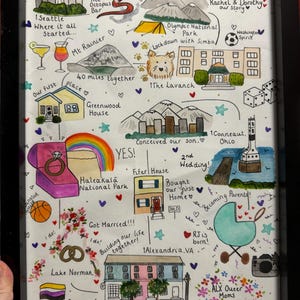 Octopus
Bar
Rachel & Dorothy
our story
Seattle
Where it all
Started...
Olympic National
Park
Washington
Spirit
Mt Rainier
Lockdown with Simba
40 miles together
The Lavanch
Our First Place
Greenwood
House
Conceived our son.
Conneaut,
Ohio
YES!
2nd
Wedding!
Haleakalā
National Park
First House
Bought
our first
Home
Becoming Parents!
Got Married!!!
RJ is
born!
Building our life
together!
Alexandria, VA
Lake Norman
ALX Queer
Moms